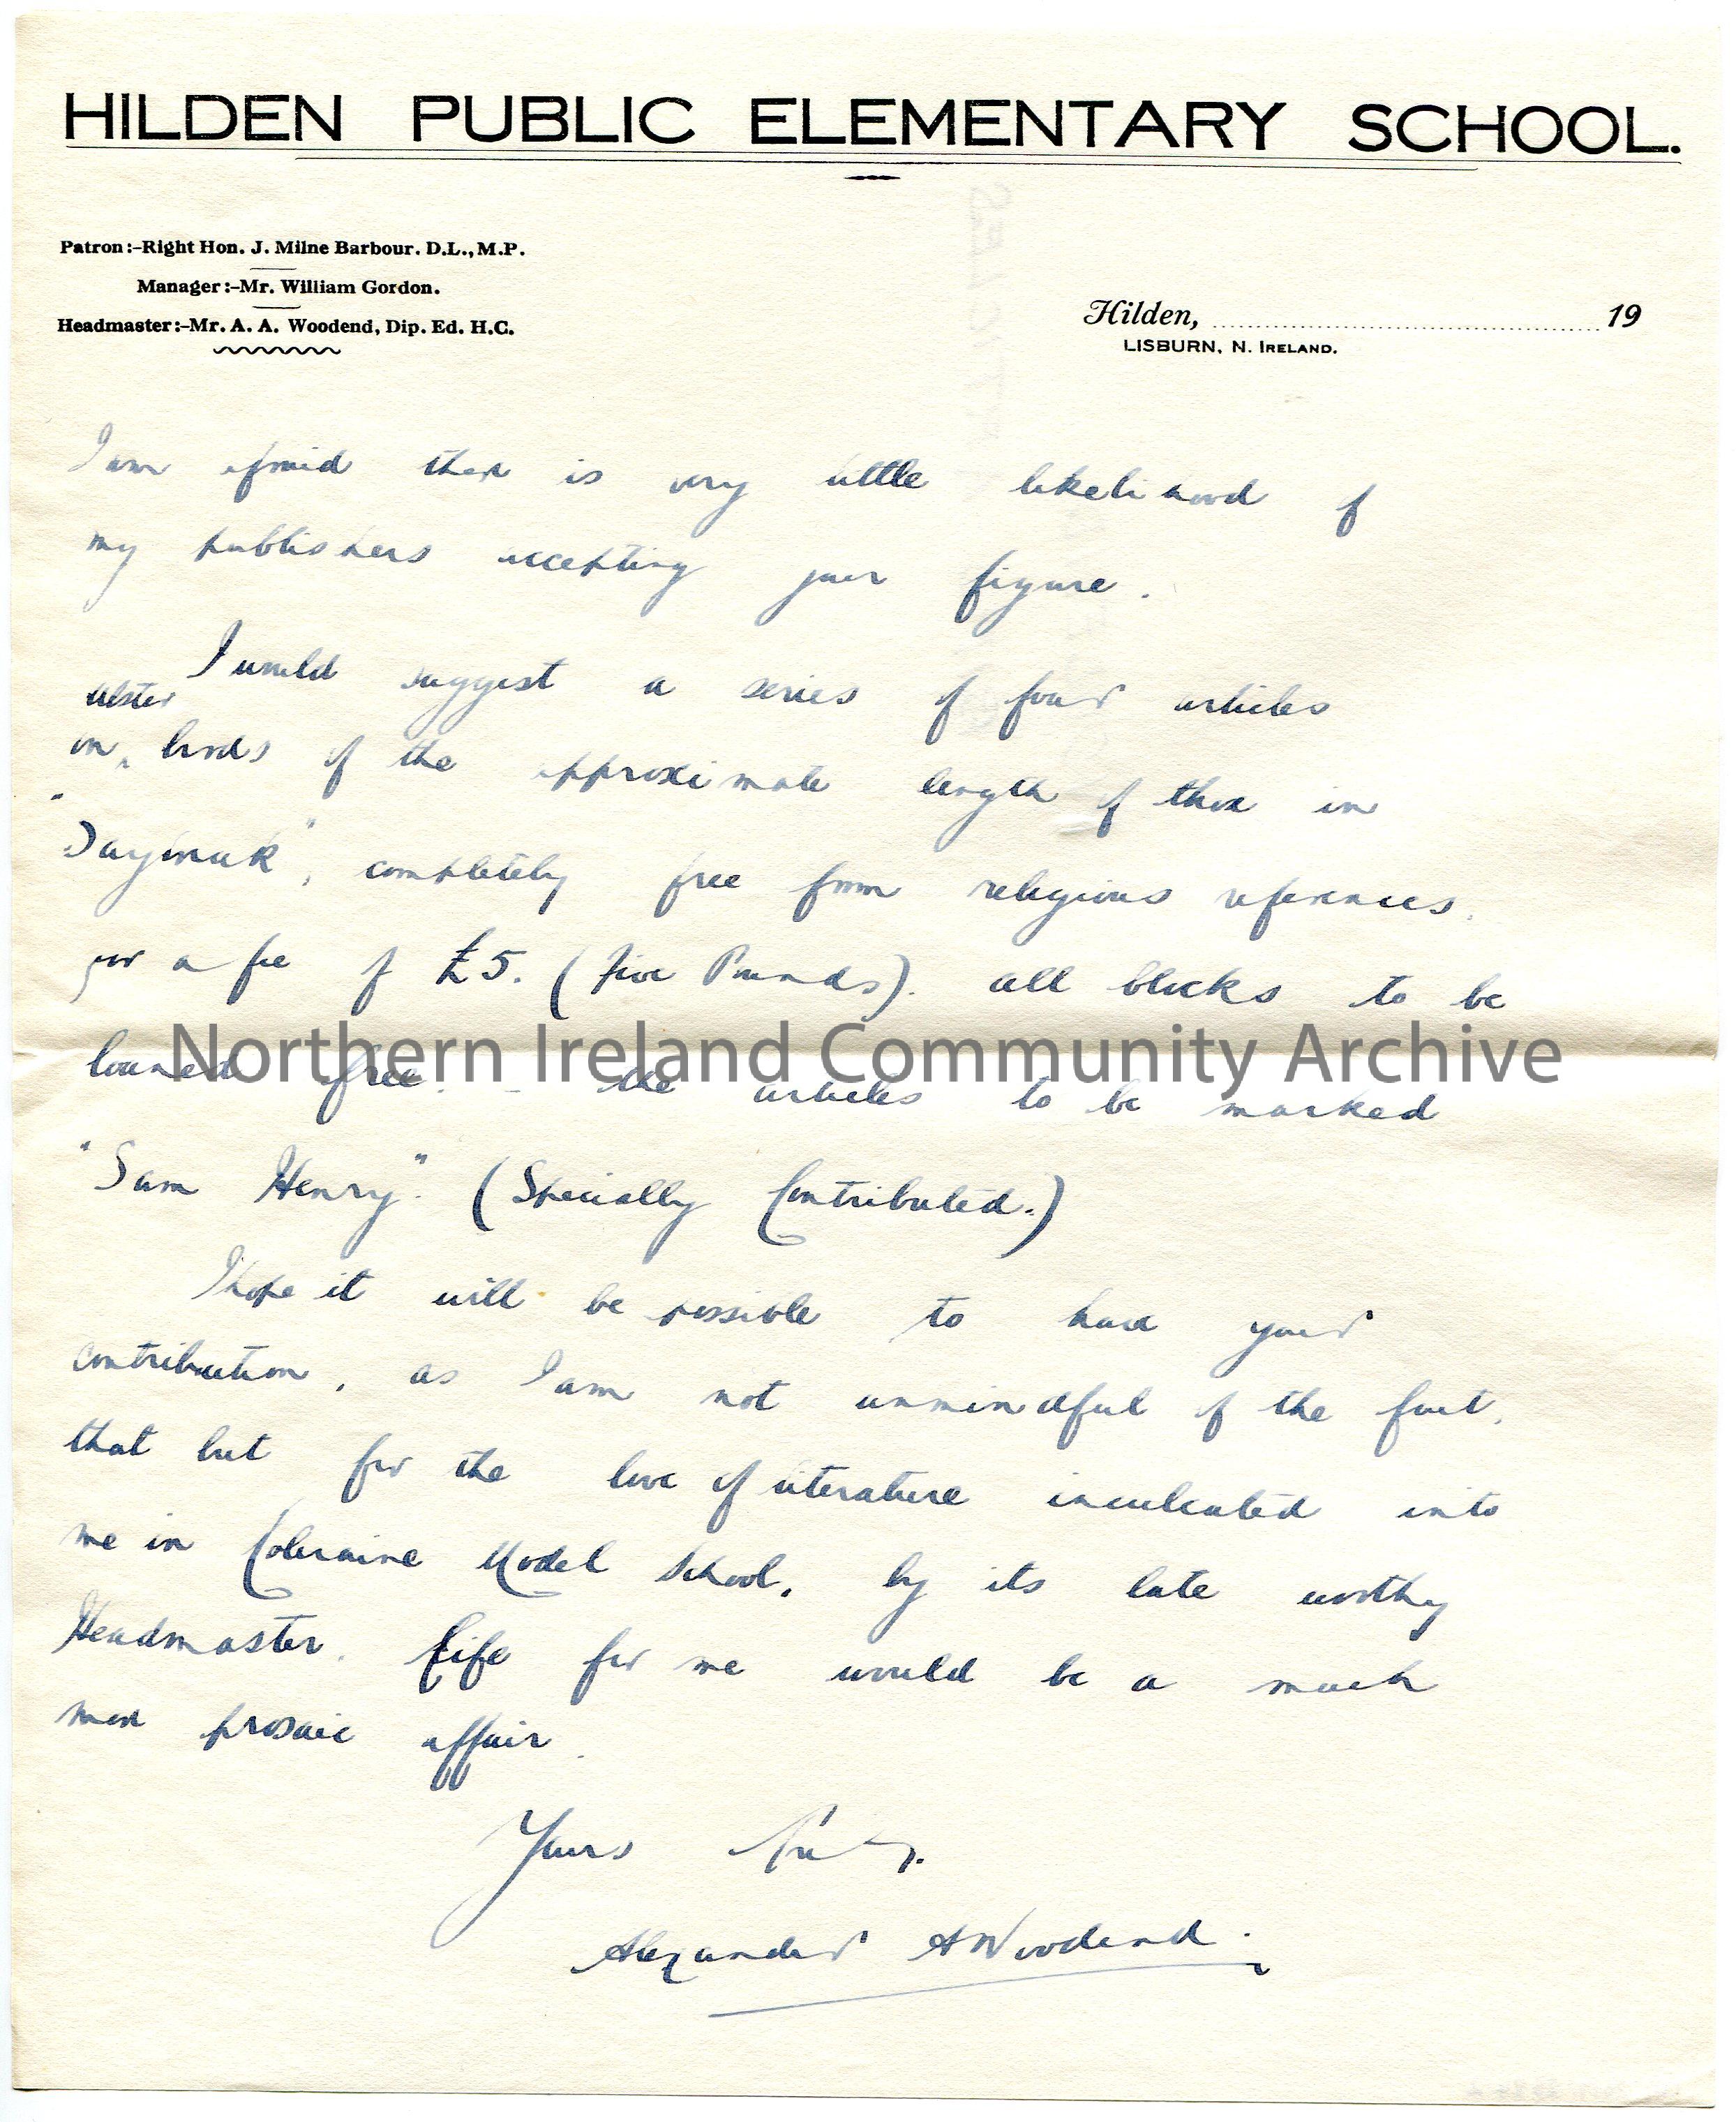 HILDEN PUBLIC ELEMENTARY SCHOOL.
Patron:-Right Hon. J. Milne Barbour. D.L., M.P.
Manager:-Mr. William Gordon.
Headmaster:-Mr. A. A. Woodend, Dip. Ed. H.C.
Hilden, 19
LISBURN, N. IRELAND.
I am afraid there is very little likelihood of
my publishers accepting your figure.
I would suggest a series of four articles
on Ulster birds of the approximate length of those in
"Daybreak", completely free from religious references,
for a fee of £5. (Five Pounds). all blocks to be
loaned free. - the articles to be marked
"Sam Henry". (Specially Contributed.)
I hope it will be possible to have your
contribution, as I am not unmindful of the fact,
that but for the love of literature inculcated into
me in Coleraine Model School, by its late worthy
Headmaster, life for me would be a much
more prosaic affair.
Yours
Alexander A Woodend.
Northern Ireland Community Archive